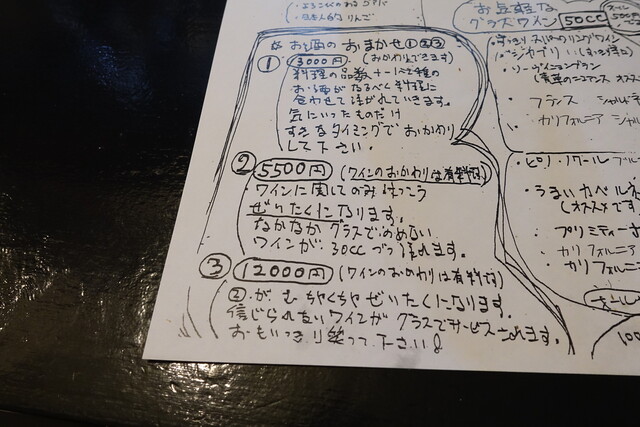 お酒のおまかせ①②③
① 3000円 (おかわりできます)
料理の品数+1〜2種の
お酒がなるべく料理に
合わせて注がれていきます。
気にいったものだけ
すきなタイミングでおかわり
して下さい。
② 5500円 (ワインのおかわりは有料です)
ワインに関してのみけっこう
ぜいたくになります。
なかなかグラスでのめない
ワインが30ccづつ注れます。
③ 12000円 (ワインのおかわりは有料です)
②がむちゃくちゃぜいたくになります。
信じられないワインがグラスでサービスされます。
おもいっきり笑って下さい!
お気軽な
グラスワイン 50cc
すっきりスパークリングワイン
シャブリ
ソーヴィニヨンブラン
フランス シャルド
カリフォルニア シャル
ピノ・ノワール ブル
うまいカベルネ
(オススメです
プリミティーボ
カリフォルニア
カリフォルニ